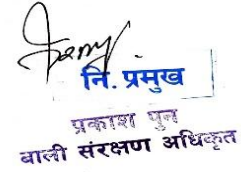 नि. प्रमुख
प्रकाश पुन
बाली संरक्षण अधिकृत